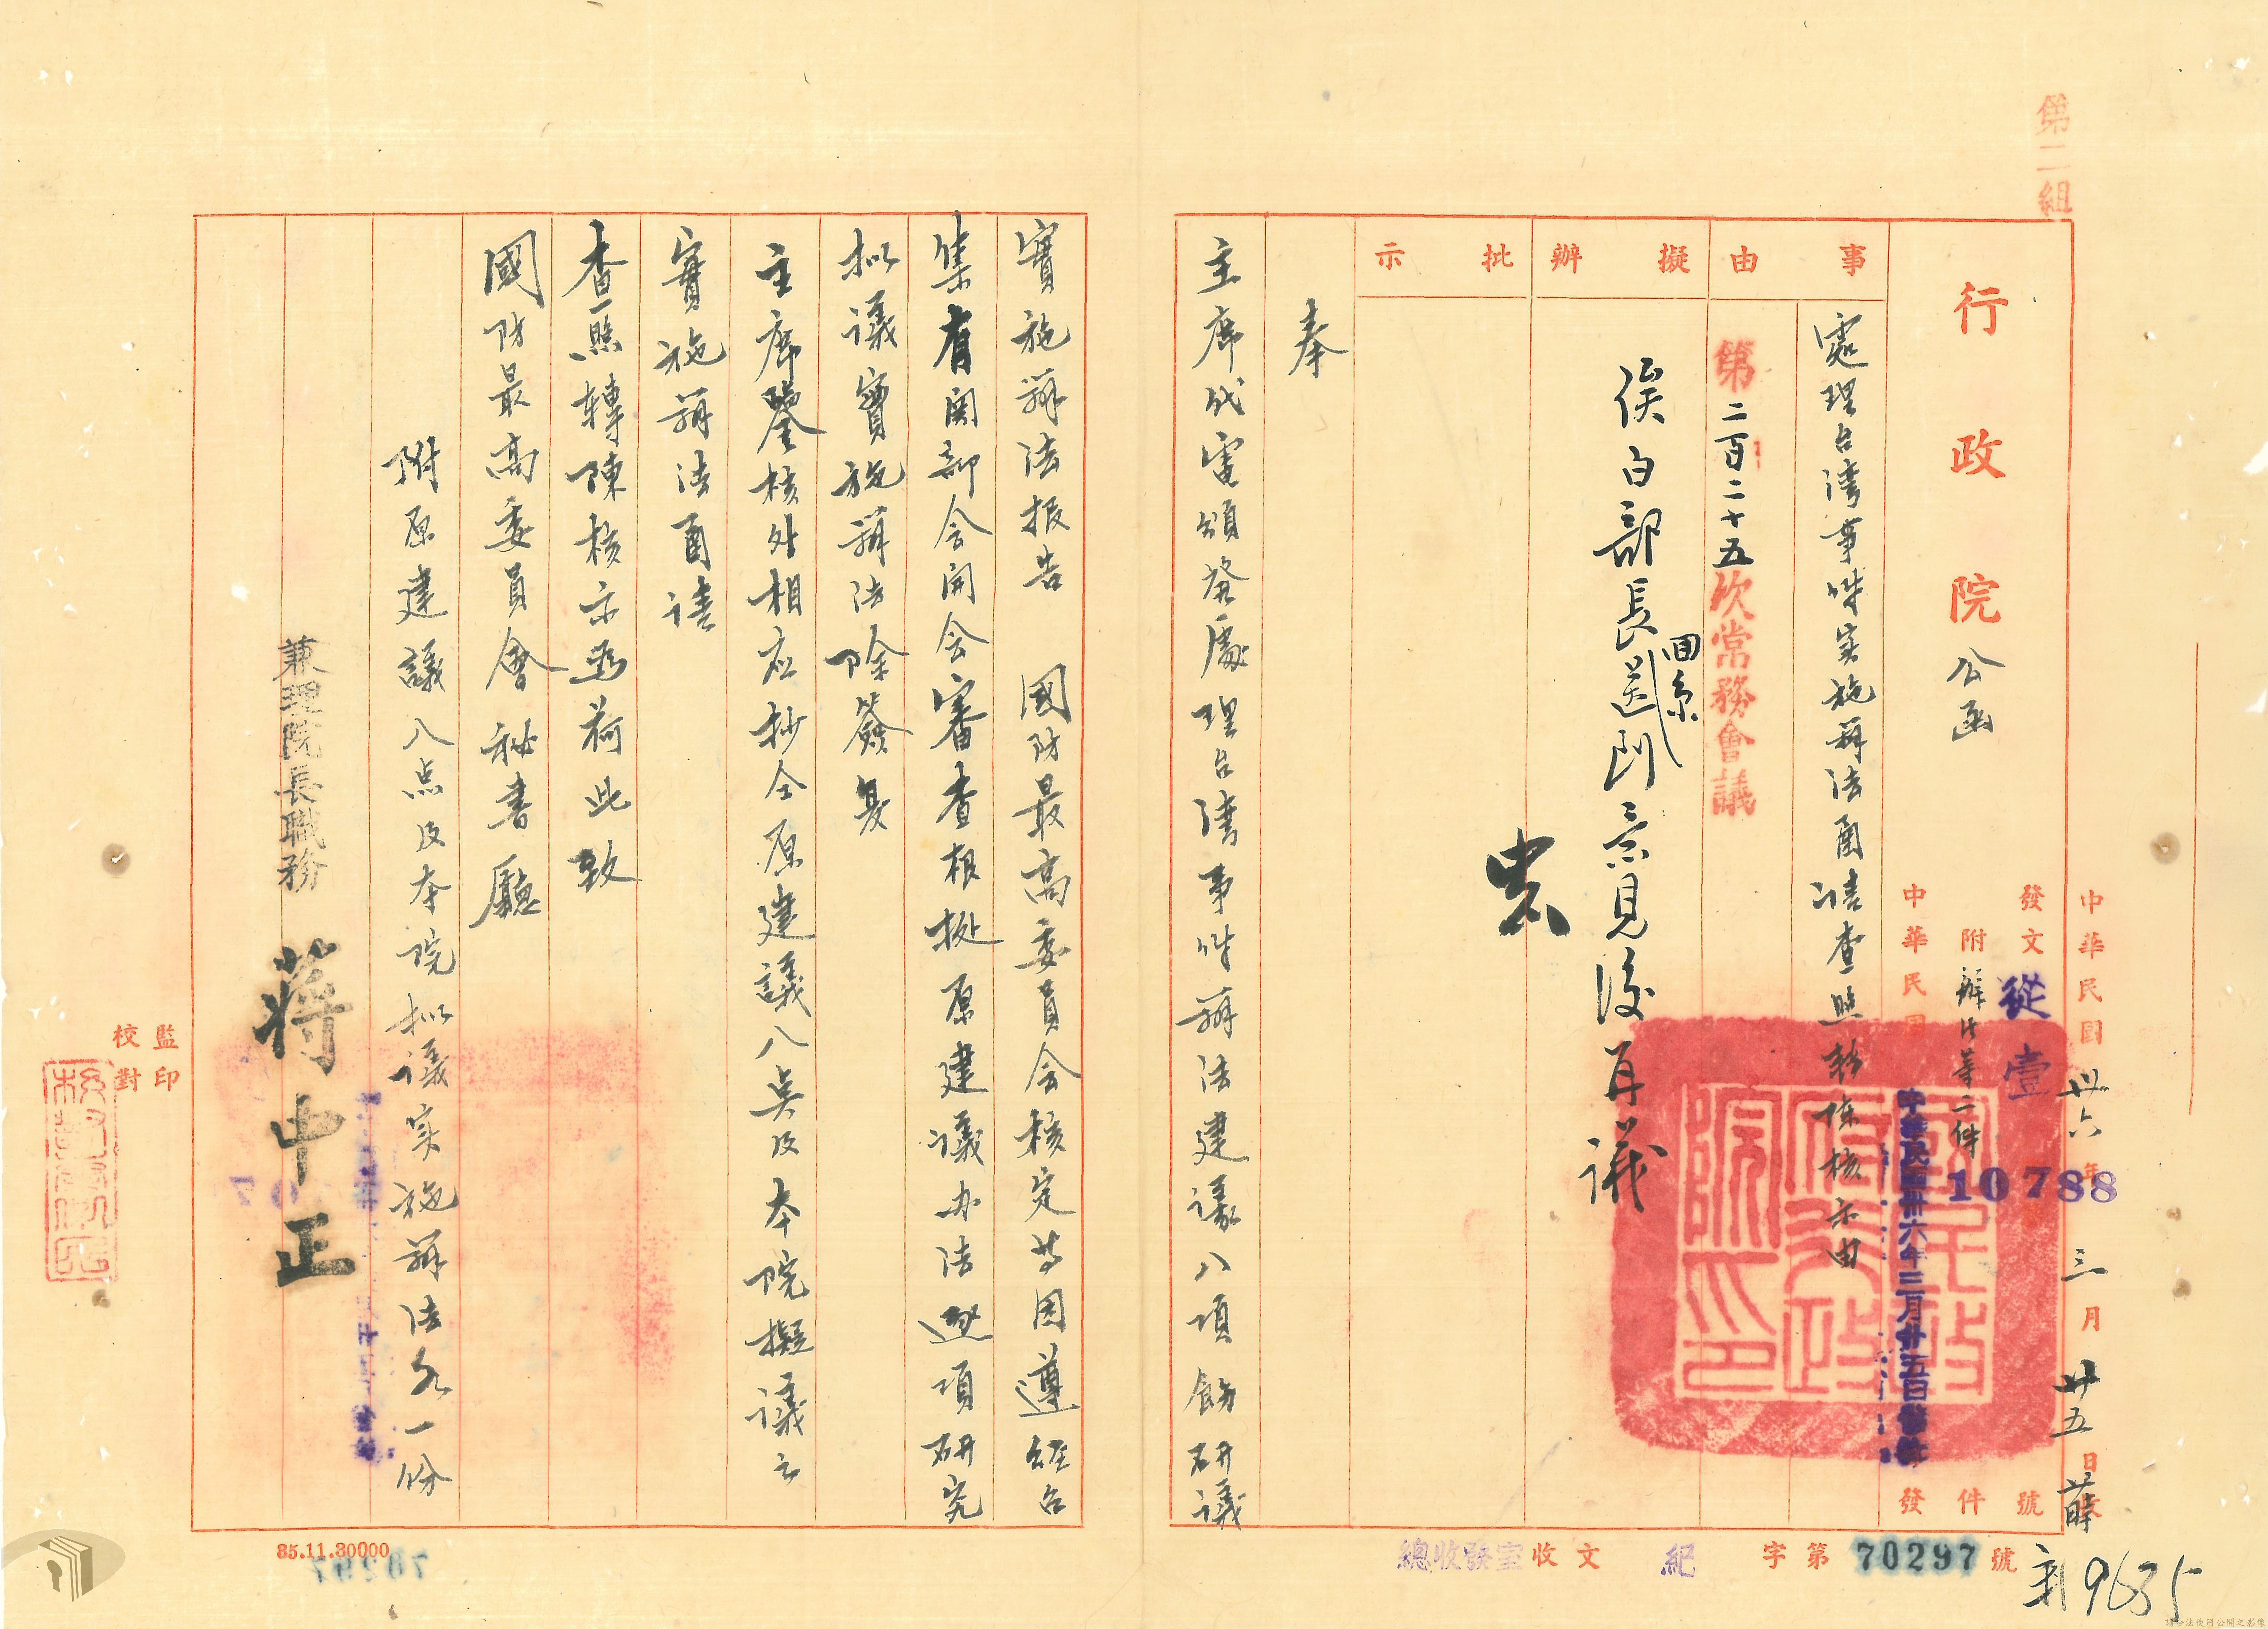 第二組
行政院公函
中華民國卅六年三月廿五日
發文從壹10788號
附辦法等二件
中華民國卅六年三月廿五日發件
事由
處理台灣事件实施辦法函請查照轉陳核示由
第二百二十五次常務會議
擬辦
俟白部長回京
意見後再議
批示
奉
主席代電頒發處理台灣事件辦法建議八項飭研議
實施辦法报告 國防最高委員会核定等因遵經召
集有関部会開会審查根據原建議办法逐項研究
拟議實施辦法除簽复
主席鑒核外相应抄仝原建議八點及本院擬議之
實施辦法函請
查照轉陳核示為荷此致
國防最高委員會秘書廳
附原建議八点及本院拟議实施辦法各一份
兼理院長職務 蔣中正
監印
校對
總收發室收文紀字第70297號
35.11.30000